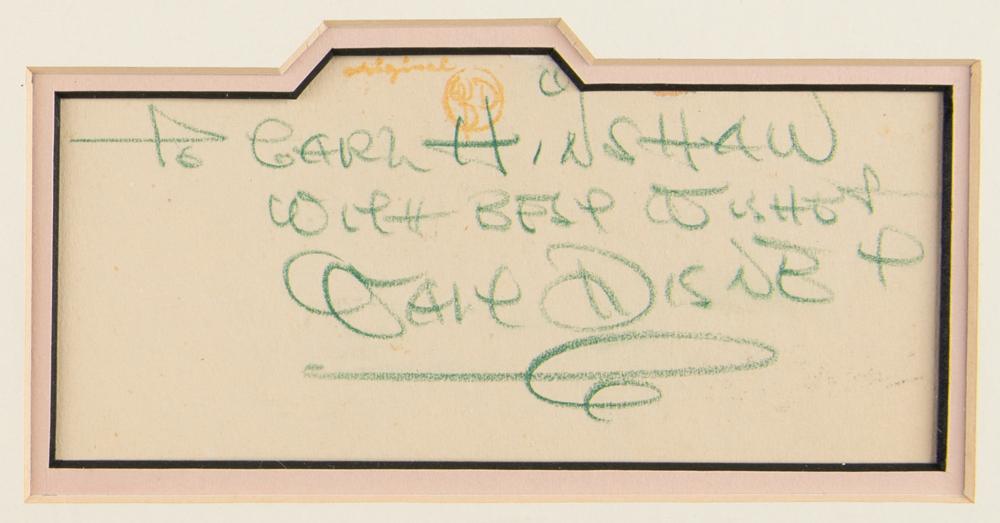 original
To Carl Hinshaw
with best wishes
Walt Disney